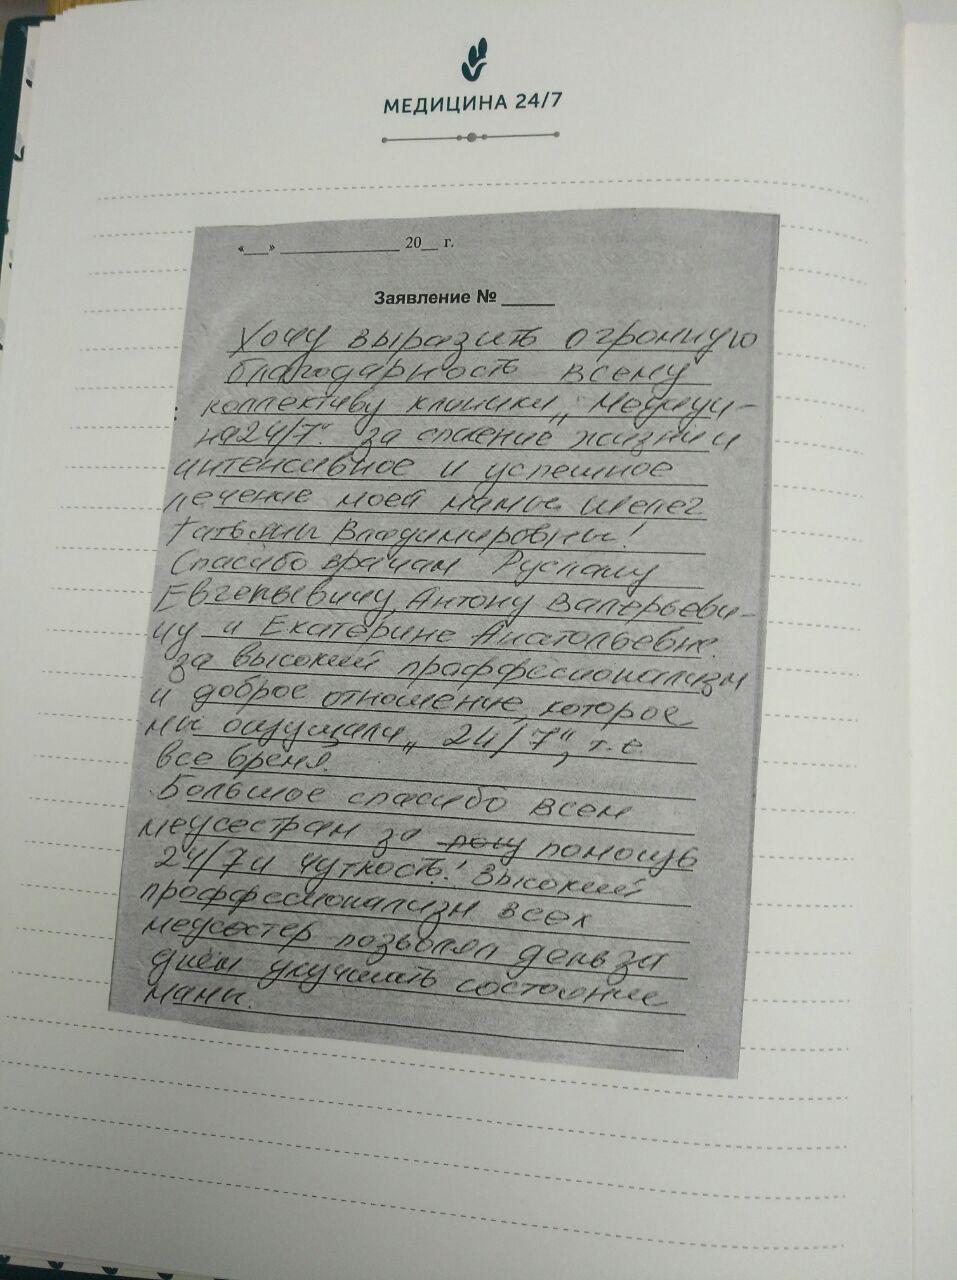 МЕДИЦИНА 24/7
«___» ____________ 20__ г.
Заявление № _____
Хочу выразить огромную
благодарность всему
коллективу клиники „Медици-
на24/7“ за спасение жизни и
интенсивное и успешное
лечение моей мамы Шелег
Татьяны Владимировны!
Спасибо врачам Руслану
Евгеньевичу, Антону Валерьеви-
чу и Екатерине Анатольевне.
за высокий проффесионализм
и доброе отношение, которое
мы ощущали „24/7“, т.е.
все время.
Большое спасибо всем
медсестрам за помощь
24/7 и чуткость! Высокий
проффесионализм всех
медсестер позволял день за
днём улучшать состояние
мамы.